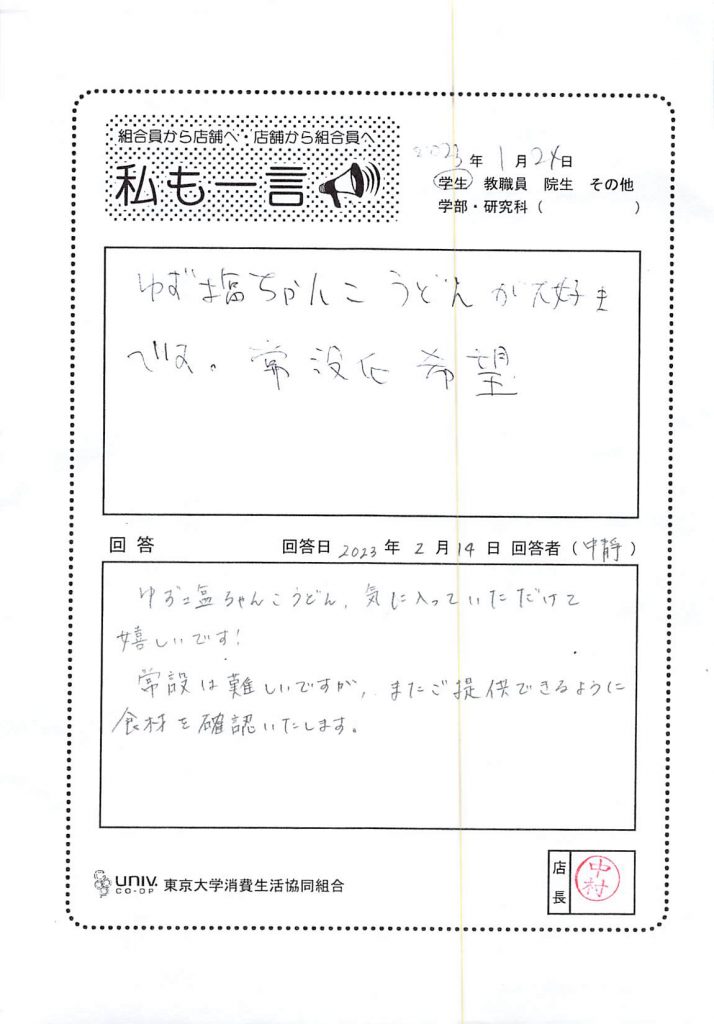 組合員から店舗へ・店舗から組合員へ
私も一言
2023年1月24日
学生 教職員 院生 その他
学部・研究科( )
ゆず塩ちゃんこうどんが大好き
です。常設化希望
回答 回答日 2023年2月14日 回答者(中静)
ゆず塩ちゃんこうどん、気に入っていただけて
嬉しいです!
常設は難しいですが、またご提供できるように
食材を確認いたします。
UNIV. CO-OP 東京大学消費生活協同組合
店長 中村